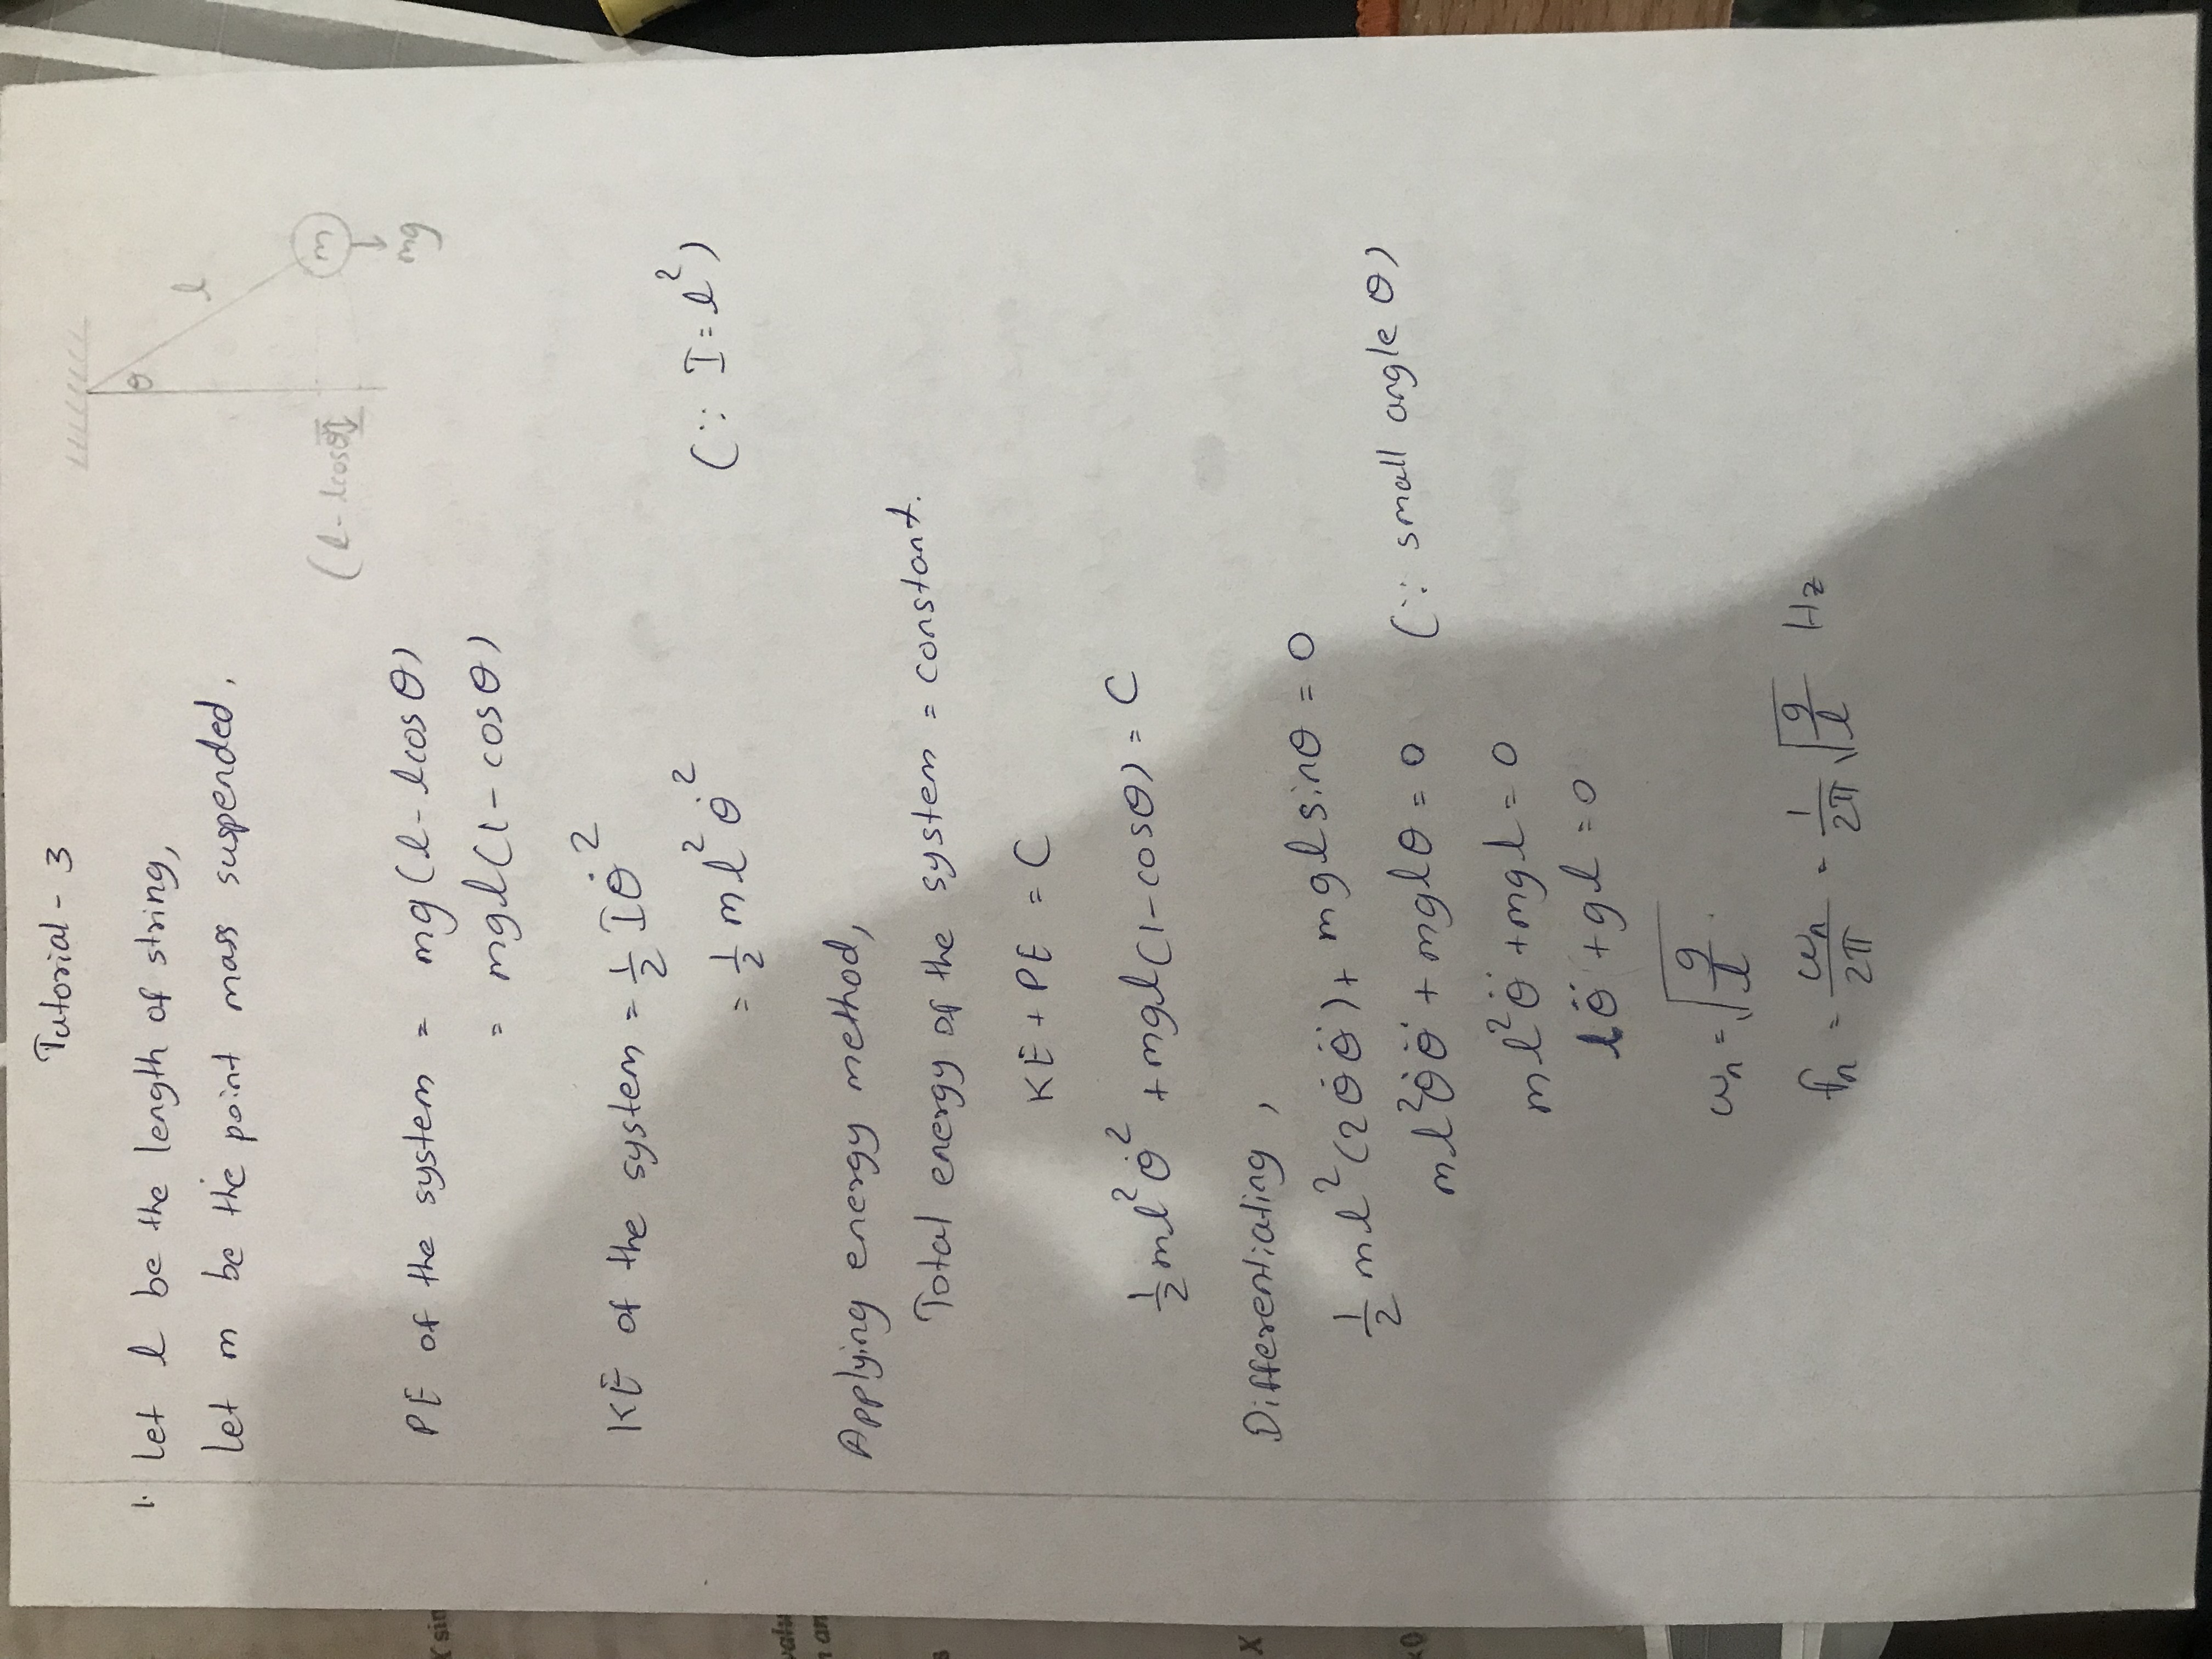 Tutorial - 3
1. Let l be the length of string,
Let m be the point mass suspended.
θ
l
(l - lcosθ)
m
mg
PE of the system = mg(l - lcosθ)
= mgl(1 - cosθ)
KE of the system = 1/2 Iθ̇²
= 1/2 ml²θ̇² (∵ I = l²)
Applying energy method,
Total energy of the system = constant.
KE + PE = C
1/2 ml²θ̇² + mgl(1-cosθ) = C
Differentiating,
1/2 ml²(2θ̇θ̈) + mglsinθ = 0
ml²θ̇θ̈ + mglθ = 0 (∵ small angle θ)
ml²θ̈ + mgl = 0
lθ̈ + gl = 0
ωn = √(g/l).
fn = ωn/2π = 1/2π √(g/l) Hz
X sin
valu
n an
s
X